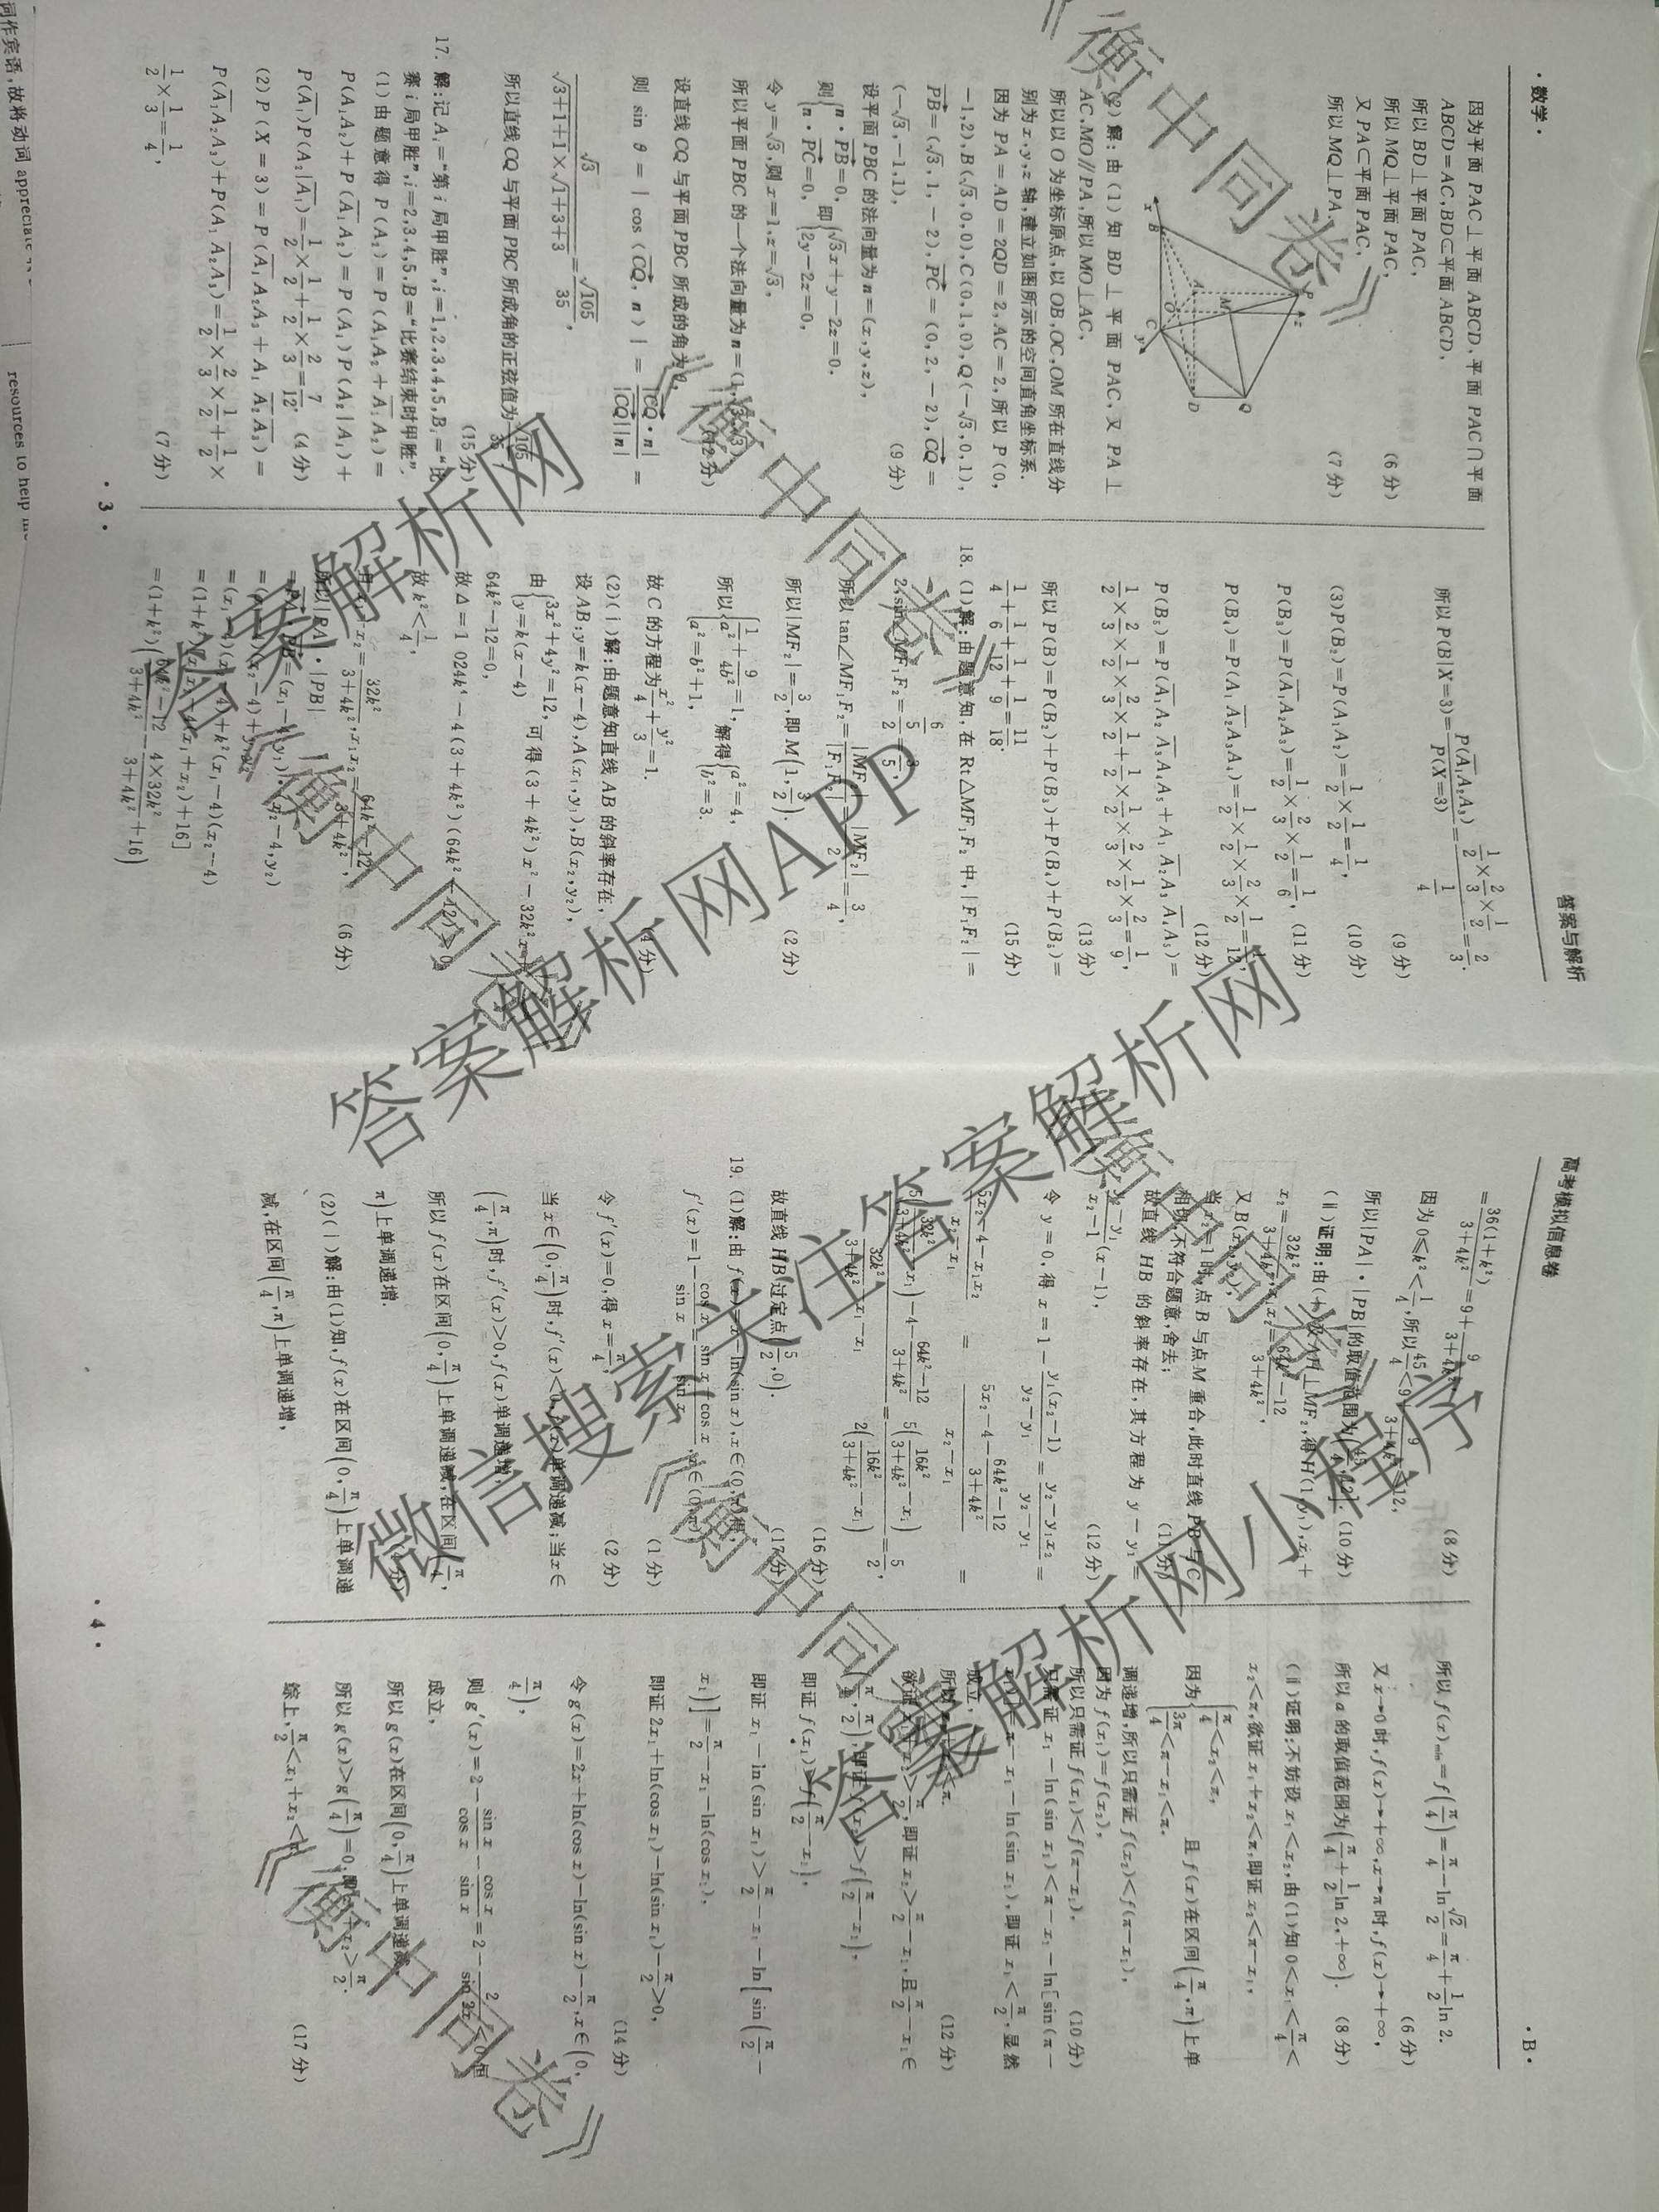 ·数学·
答案与解析
因为平面 PAC⊥平面 ABCD,平面 PAC∩平面
ABCD=AC,BD⊂平面 ABCD,
所以 BD⊥平面 PAC,
所以 MQ⊥平面 PAC, (6分)
又 PA⊂平面 PAC,
所以 MQ⊥PA. (7分)
(2)解:由(1)知 BD⊥平面 PAC,又 PA⊥
AC,MO∥PA,所以 MO⊥AC,
所以以 O 为坐标原点,以 OB,OC,OM 所在直线分
别为 x,y,z 轴,建立如图所示的空间直角坐标系.
因为 PA=AD=2QD=2,AC=2,所以 P(0,
-1,2),B(√3,0,0),C(0,1,0),Q(-√3,0,1),
PB=(√3,1,-2),PC=(0,2,-2),CQ=
(-√3,-1,1), (9分)
设平面 PBC 的法向量为 n=(x,y,z),
则{n·PB=0, n·PC=0, 即{√3x+y-2z=0, 2y-2z=0,
令 y=√3,则 x=1,z=√3,
所以平面 PBC 的一个法向量为 n=(1,√3,√3). (12分)
设直线 CQ 与平面 PBC 所成的角为 θ,
则 sin θ=|cos⟨CQ,n⟩|=|CQ·n|/(|CQ||n|)=
√3/(√3+1+1×√1+3+3)=√105/35,
所以直线 CQ 与平面 PBC 所成角的正弦值为√105/35. (15分)
17. 解:记 Aᵢ="第 i 局甲胜",i=1,2,3,4,5,Bᵢ="比
赛 i 局甲胜",i=2,3,4,5,B="比赛结束时甲胜".
(1)由题意得 P(A₂)=P(A₁A₂+A̅₁A₂)=
P(A₁A₂)+P(A̅₁A₂)=P(A₁)P(A₂|A₁)+
P(A̅₁)P(A₂|A̅₁)=1/2×1/2+1/2×2/3=7/12. (4分)
(2)P(X=3)=P(A̅₁A₂A₃+A₁A̅₂A̅₃)=
P(A̅₁A₂A₃)+P(A₁A̅₂A̅₃)=1/2×2/3×1/2+1/2×
1/2×1/3=1/4, (7分)
所以 P(B|X=3)=P(A̅₁A₂A₃)/P(X=3)=(1/2×2/3×1/2)/(1/4)=2/3. (9分)
(3)P(B₂)=P(A₁A₂)=1/2×1/2=1/4, (10分)
P(B₃)=P(A̅₁A₂A₃)=1/2×2/3×1/2=1/6, (11分)
P(B₄)=P(A₁A̅₂A₃A₄)=1/2×1/2×2/3×1/2=1/12, (12分)
P(B₅)=P(A̅₁A₂A̅₃A₄A₅+A₁A̅₂A₃A̅₄A₅)=
1/2×2/3×1/2×2/3×1/2+1/2×1/2×2/3×1/2×2/3=1/9, (13分)
所以 P(B)=P(B₂)+P(B₃)+P(B₄)+P(B₅)=
1/4+1/6+1/12+1/9=11/18. (15分)
18. (1)解:由题意知,在 Rt△MF₁F₂ 中,|F₁F₂|=
所以 tan∠MF₁F₂=|MF₂|/|F₁F₂|=|MF₂|/2=3/4,
所以|MF₂|=3/2,即 M(1,3/2). (2分)
所以{1/a²+9/4b²=1, a²=b²+1, 解得{a²=4, b²=3.
故 C 的方程为x²/4+y²/3=1. (4分)
(2)(ⅰ)解:由题意知直线 AB 的斜率存在,
设 AB:y=k(x-4),A(x₁,y₁),B(x₂,y₂),
由{3x²+4y²=12, y=k(x-4) 可得(3+4k²)x²-32k²x+
64k²-12=0,
故 Δ=1 024k⁴-4(3+4k²)(64k²-12)>0,
故 k²<1/4,
x₂=32k²/3+4k²,x₁x₂=64k²-12/3+4k², (6分)
所以|PA|·|PB|
=(x₁-4)(x₂-4)+y₁y₂
=(x₁-4)(x₂-4)+k²(x₁-4)(x₂-4)
=(1+k²)[x₁x₂-4(x₁+x₂)+16]
=(1+k²)(64k²-12/3+4k²-4×32k²/3+4k²+16)
·3·
高考模拟信息卷
·B·
=36(1+k²)/3+4k²=9+9/3+4k², (8分)
因为 0≤k²<1/4,所以45/4<9+9/3+4k²≤12,
所以|PA|·|PB|的取值范围为(45/4,12]. (10分)
(ⅱ)证明:由(ⅰ)及AH⊥MF₂,得H(1,y₁),x₁+
x₂=32k²/3+4k²,x₁x₂=64k²-12/3+4k²,
又 B(x₂,y₂),
当 x₂=1 时,点 B 与点 M 重合,此时直线 PB 与 C
相切,不符合题意,舍去; (11分)
故直线 HB 的斜率存在,其方程为 y-y₁=
y₂-y₁/x₂-1(x-1), (12分)
令 y=0,得 x=1-y₁(x₂-1)/y₂-y₁=y₂-y₁x₂/y₂-y₁=
5x₂-4-x₁x₂/x₂-x₁=5x₂-4-64k²-12/3+4k²/x₂-x₁=
5(32k²/3+4k²-x₁)-4-64k²-12/3+4k²/32k²/3+4k²-x₁-x₁=5(16k²/3+4k²-x₁)/2(16k²/3+4k²-x₁)=5/2, (16分)
故直线 HB 过定点(5/2,0). (17分)
19. (1)解:由 f(x)=x-ln(sin x),x∈(0,π)得,
f′(x)=1-cos x/sin x=sin x-cos x/sin x,x∈(0,π), (1分)
令 f′(x)=0,得 x=π/4, (2分)
当 x∈(0,π/4)时,f′(x)<0,f(x)单调递减;当 x∈
(π/4,π)时,f′(x)>0,f(x)单调递增,
所以 f(x)在区间(0,π/4)上单调递减,在区间(π/4,
π)上单调递增.
(2)(ⅰ)解:由(1)知,f(x)在区间(0,π/4)上单调递
减,在区间(π/4,π)上单调递增,
所以 f(x)min=f(π/4)=π/4-ln√2/2=π/4+1/2ln 2. (6分)
又 x→0 时,f(x)→+∞,x→π 时,f(x)→+∞,
所以 a 的取值范围为(π/4+1/2ln 2,+∞). (8分)
(ⅱ)证明:不妨设 x₁<x₂,由(1)知 0<x₁<π/4<
x₂<π,欲证 x₁+x₂<π,即证 x₂<π-x₁,
因为{π/4<x₂<π, 3π/4<π-x₁<π, 且 f(x)在区间(π/4,π)上单
调递增,所以只需证 f(x₂)<f(π-x₁),
因为 f(x₁)=f(x₂),
所以只需证 f(x₁)<f(π-x₁), (10分)
只需证 x₁-ln(sin x₁)<π-x₁-ln[sin(π-
π-x₁-ln(sin x₁),即证 x₁<π/2,显然
成立,
所以 x₁+x₂<π. (12分)
欲证 x₁+x₂>π/2,即证 x₂>π/2-x₁,且π/2-x₁∈
(π/4,π/2),即证 f(x₂)>f(π/2-x₁),
即证 f(x₁)>f(π/2-x₁),
即证 x₁-ln(sin x₁)>π/2-x₁-ln[sin(π/2-
x₁)]=π/2-x₁-ln(cos x₁),
即证 2x₁+ln(cos x₁)-ln(sin x₁)-π/2>0, (14分)
令 g(x)=2x+ln(cos x)-ln(sin x)-π/2,x∈(0,
π/4),
则 g′(x)=2-sin x/cos x-cos x/sin x=2-2/sin 2x<0 恒
成立,
所以 g(x)在区间(0,π/4)上单调递减,
所以 g(x)>g(π/4)=0,即 x₁+x₂>π/2.
综上,π/2<x₁+x₂<π. (17分)
·4·
词作宾语,故将动词 appreciate
resources to help
《衡中同卷》
《衡中同卷》
《衡中同卷》
《衡中同卷》
《衡中同卷》
答案解析网
答案解析网APP
微信搜索关注答案解析网
答案解析网小程序